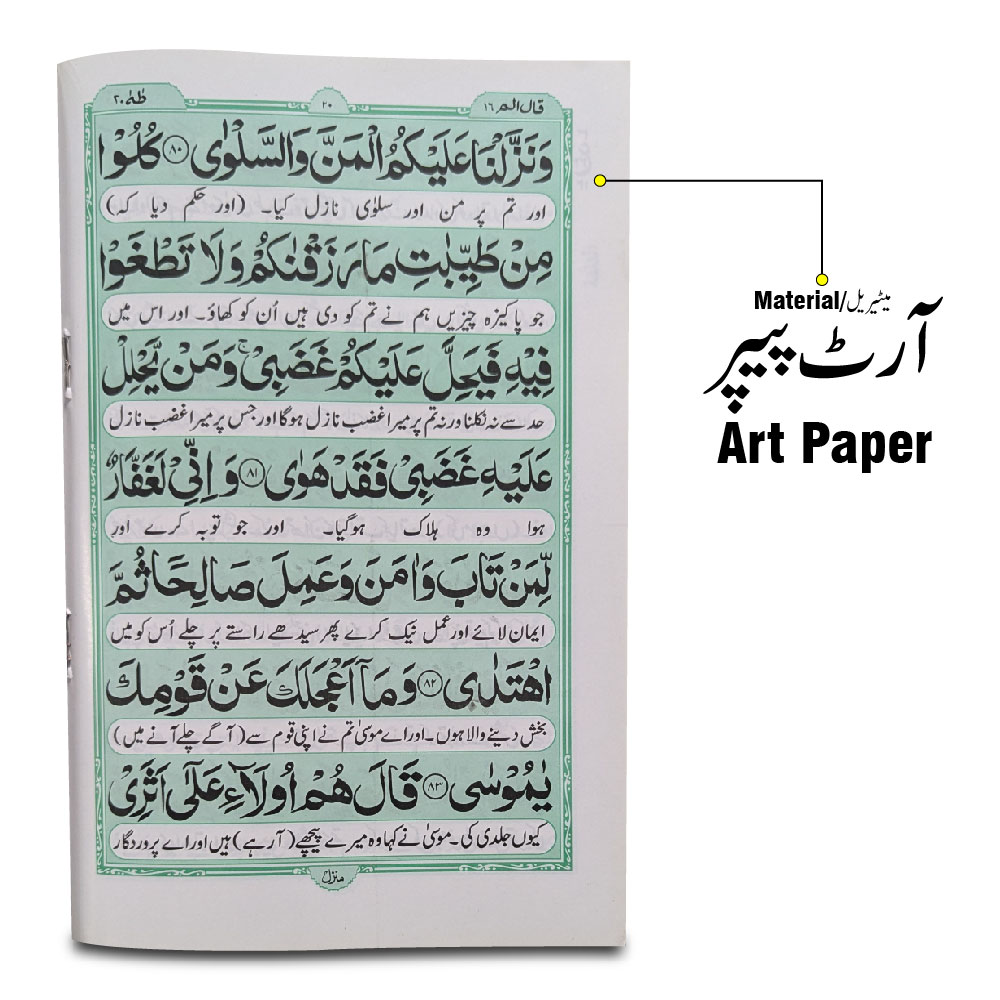 قال الم ١٦
٢٠
طٰهٰ ٢٠
وَنَزَّلْنَا عَلَيْكُمُ الْمَنَّ وَالسَّلْوٰى ﴿٨٠﴾ كُلُوْا
اور تم پر من اور سلوٰی نازل کیا۔ (اور حکم دیا کہ)
مِنْ طَيِّبٰتِ مَا رَزَقْنٰكُمْ وَلَا تَطْغَوْا
جو پاکیزہ چیزیں ہم نے تم کو دی ہیں اُن کو کھاؤ۔ اور اس میں
فِيْهِ فَيَحِلَّ عَلَيْكُمْ غَضَبِىْ ۚ وَمَنْ يَّحْلِلْ
حد سے نہ نکلنا ورنہ تم پر میرا غضب نازل ہوگا اور جس پر میرا غضب نازل
عَلَيْهِ غَضَبِىْ فَقَدْ هَوٰى ﴿٨١﴾ وَاِنِّىْ لَغَفَّارٌ
ہوا وہ ہلاک ہوگیا۔ اور جو توبہ کرے اور
لِّمَنْ تَابَ وَاٰمَنَ وَعَمِلَ صَالِحًا ثُمَّ
ایمان لائے اور عمل نیک کرے پھر سیدھے راستے پر چلے اُس کو میں
اهْتَدٰى ﴿٨٢﴾ وَمَآ اَعْجَلَكَ عَنْ قَوْمِكَ
بخش دینے والا ہوں۔ اور اے موسٰی تم نے اپنی قوم سے (آگے چلے آنے میں)
يٰمُوْسٰى ﴿٨٣﴾ قَالَ هُمْ اُولَآءِ عَلٰٓى اَثَرِىْ
کیوں جلدی کی۔ موسٰی نے کہا وہ میرے پیچھے (آ رہے) ہیں اور اے پروردگار
Material/میٹیریل
آرٹ پیپر
Art Paper